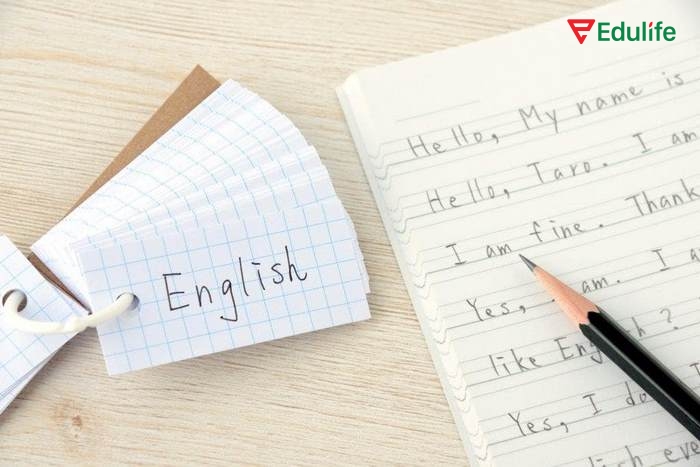 Edulife
English
Hello, My name is
Hello, Taro. I am
I am fine. Thank
Yes, I am. I a
like English?
Yes, I do. I